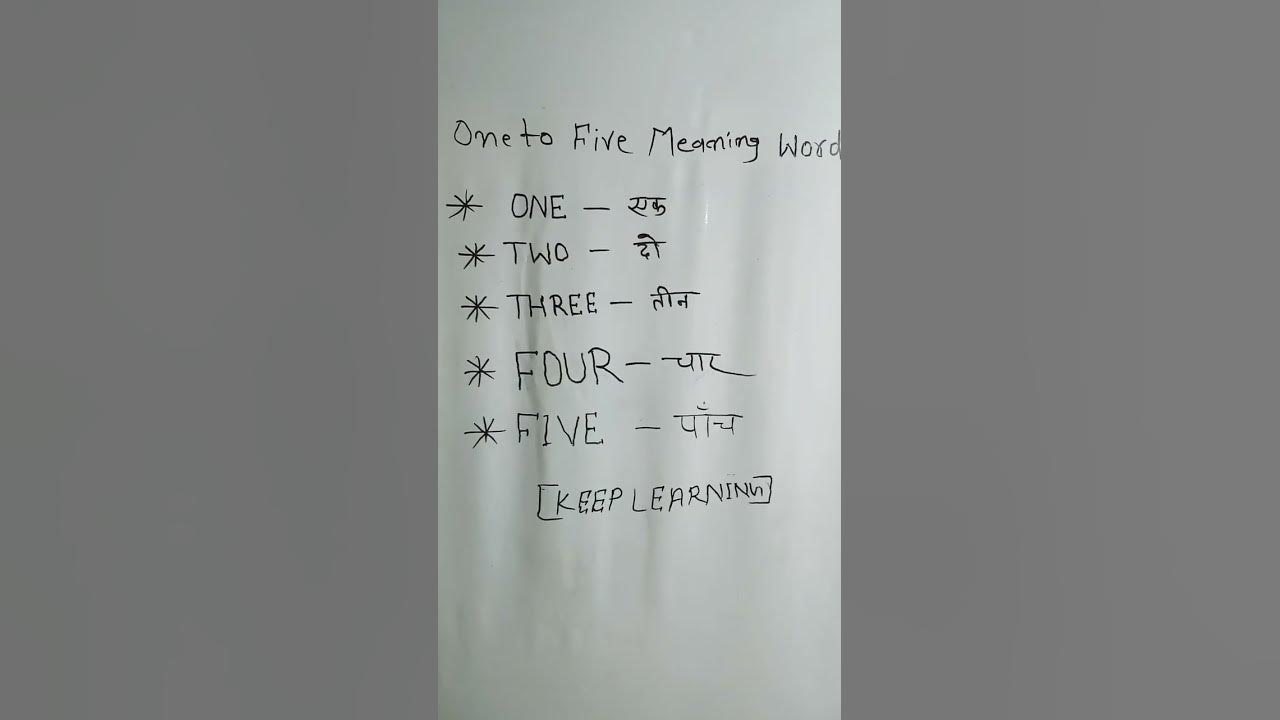 One to Five Meaning Word
* ONE – एक
* TWO – दो
* THREE – तीन
* FOUR – चार
* FIVE – पाँच
[KEEP LEARNING]